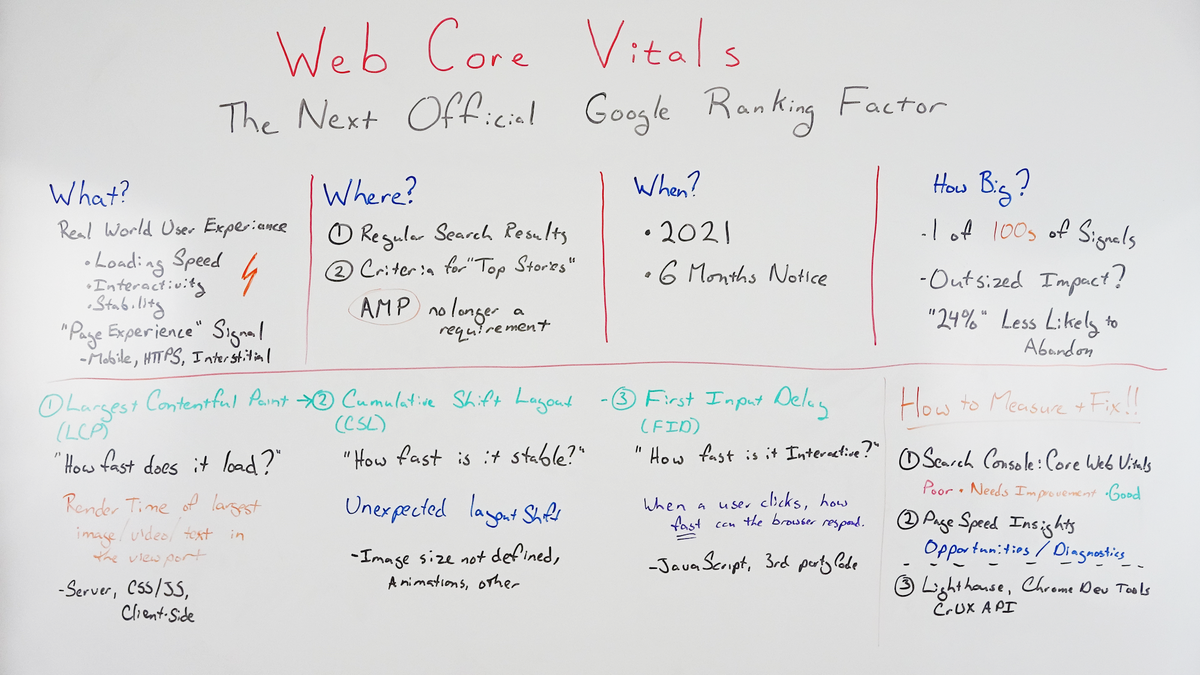 Web Core Vitals
The Next Official Google Ranking Factor
What?
Real World User Experience
• Loading Speed
• Interactivity
• Stability
"Page Experience" Signal
- Mobile, HTTPS, Interstitial
Where?
① Regular Search Results
② Criteria for "Top Stories"
AMP no longer a
requirement
When?
• 2021
• 6 Months Notice
How Big?
- 1 of 100s of Signals
- Outsized Impact?
"24%" Less Likely to
Abandon
① Largest Contentful Paint →
(LCP)
"How fast does it load?"
Render Time of largest
image/video/text in
the viewport
- Server, CSS/JS,
Client-Side
② Cumulative Shift Layout
(CSL)
"How fast is it stable?"
Unexpected layout Shift
- Image size not defined,
Animations, other
- ③ First Input Delay
(FID)
"How fast is it Interactive?"
When a user clicks, how
fast can the browser respond.
- JavaScript, 3rd party Code
How to Measure + Fix!!
① Search Console: Core Web Vitals
Poor • Needs Improvement • Good
② Page Speed Insights
Opportunities / Diagnostics
③ Lighthouse, Chrome Dev Tools
CrUX API